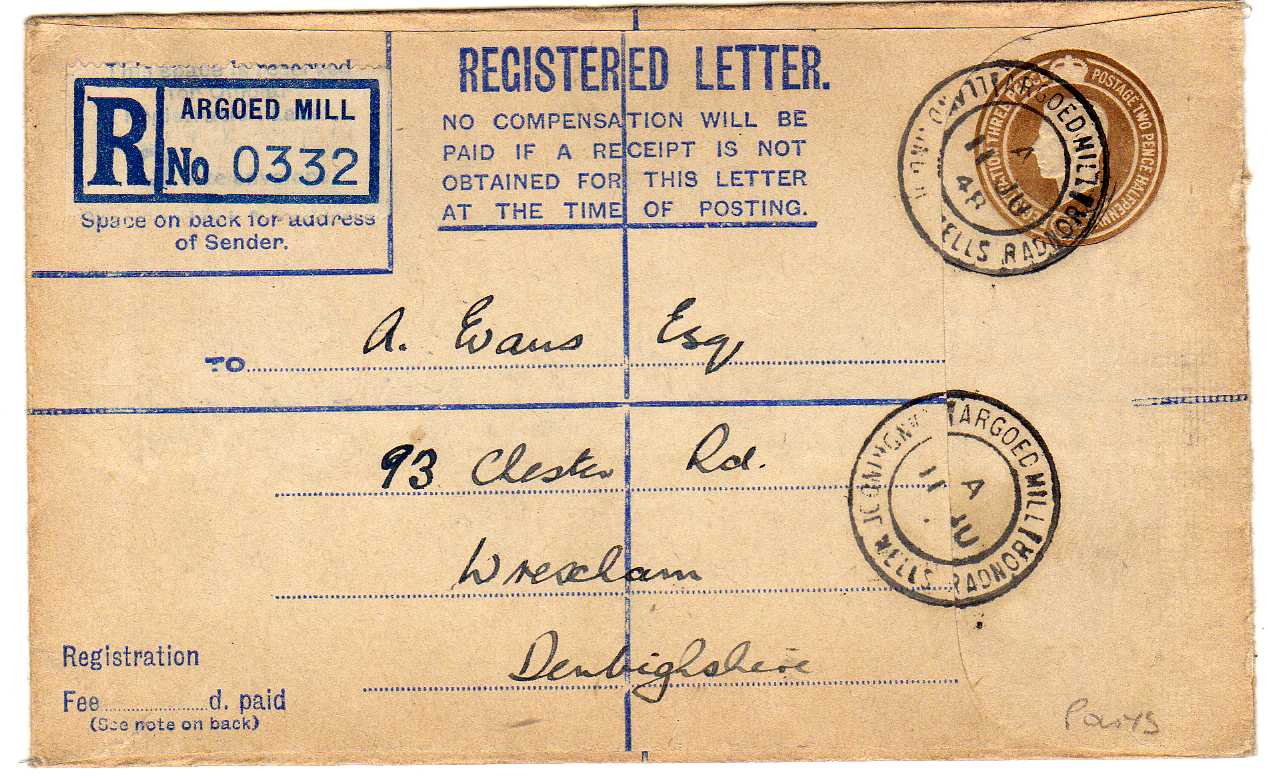 REGISTERED LETTER.
NO COMPENSATION WILL BE
PAID IF A RECEIPT IS NOT
OBTAINED FOR THIS LETTER
AT THE TIME OF POSTING.
R ARGOED MILL
No 0332
Space on back for address
of Sender.
POSTAGE TWO PENCE HALFPENNY
ARGOED MILL LLANDRINDOD WELLS RADNOR
A
11 JU
48
TO A. Evans Esq,
93 Chester Rd.
Wrexham
Denbighshire
ARGOED MILL LLANDRINDOD WELLS RADNOR
A
11 JU
Registration
Fee d. paid
(See note on back)